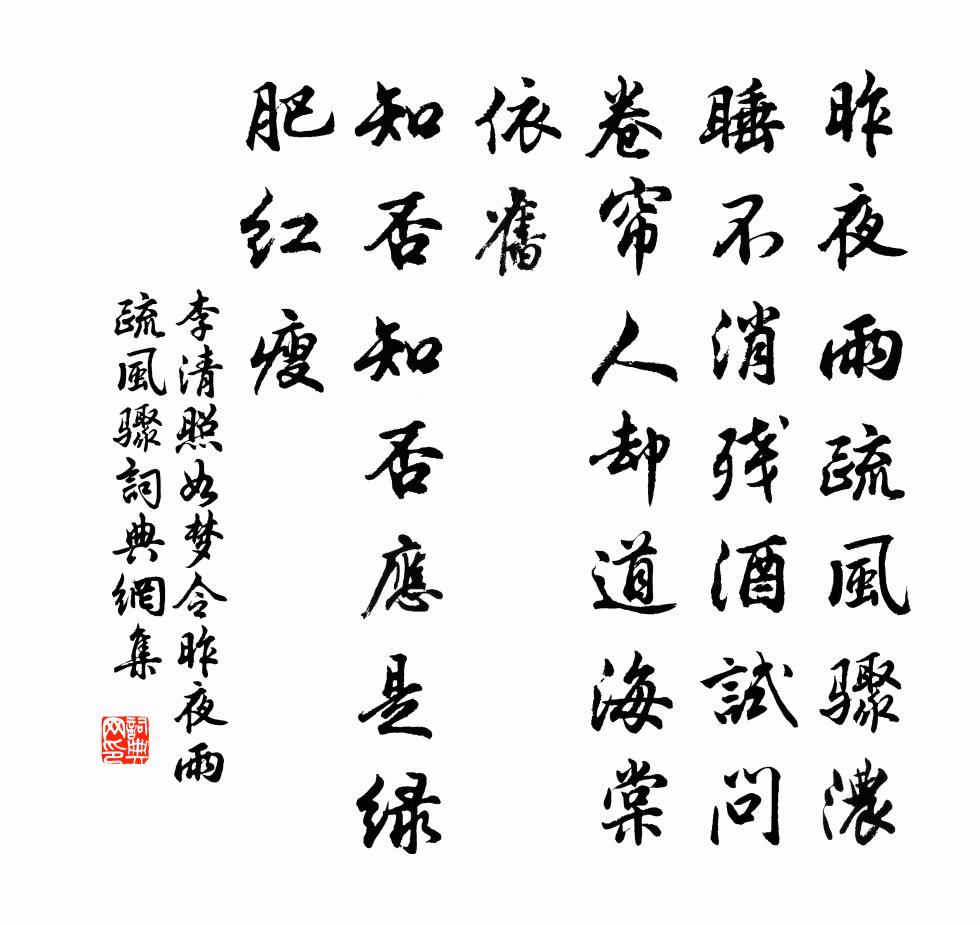 昨夜雨疏風驟濃
睡不消残酒試問
卷帘人却道海棠
依舊
知否知否應是绿
肥红瘦
李清照如梦令昨夜雨
疏風驟詞典網集
詞典
网印